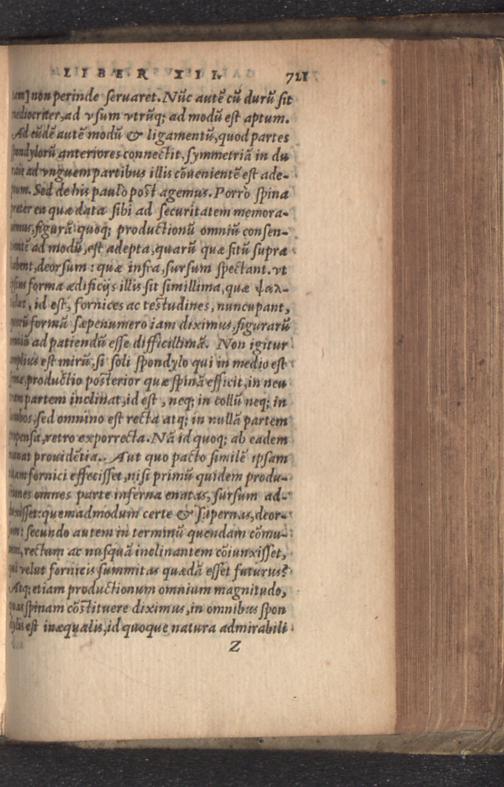 LIBER XII. 721
non perinde seruaret. Nũc autẽ cũ durũ sit
mediocriter, ad vsum vtrũq; ad modũ est aptum.
Ad eũdẽ autẽ modũ & ligamentũ, quod partes
spondylorũ anteriores connectit. symmetriã in du
ad vnguem partibus illis cõuenientẽ est ade-
ptum. Sed de his paulò pòst agemus. Porrò spina
præter ea quæ data sibi ad securitatem memora-
uimus, figurã quoq; productionũ omniũ consen-
ad modũ, est adepta, quarũ quæ sitũ supra
habent, deorsum: quæ infra, sursum spectant. vt
ipsius forma ædificijs illis sit simillima, quæ ψαλ-
, id est, fornices ac testudines, nuncupant,
quorũ formã sæpenumero iam diximus, figurarũ
omniũ ad patiendũ esse difficillimã. Non igitur
amplius est mirũ, si soli spondylo qui in medio est
productio posterior quæ spinã efficit, in neu
tram partem inclinat, id est, neq; in collũ neq; in
lumbos, sed omnino est recta atq; in nullã partem
propensa, retro exporrecta. Nã id quoq; ab eadem
prouidẽtia. Aut quo pacto similẽ ipsam
fornici effecisset, nisi primũ quidem produ-
ctiones omnes parte inferna enatas, sursum ad-
duxisset: quemadmodum certe & supernas, deor-
sum: secundo autem in terminũ quendam cõmu-
nem, rectam ac nusquã inclinantem cõiunxisset,
qui velut fornicis summitas quædã esset futurus?
Atq; etiam productionum omnium magnitudo,
quas spinam cõstituere diximus, in omnibus spon
dylis est inæqualis, id quoque natura admirabili
Z